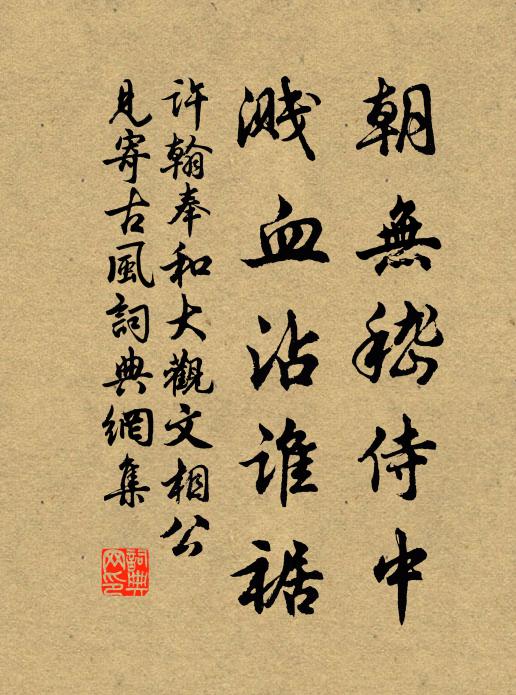 朝無嵇侍中
濺血沾誰裾
許翰奉和大觀文相公
見寄古風詞典網集
詞典網印